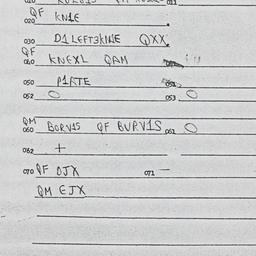 QF
020 KN1E
030 D1 LEFT3KN1E QXX
QF
040 KNEXL QAM
050 P1RTE
052 O 053 O
QM
060 BORV1S QF BURV1S 061 O
062 +
070 QF DJX 071 —
QM EJX